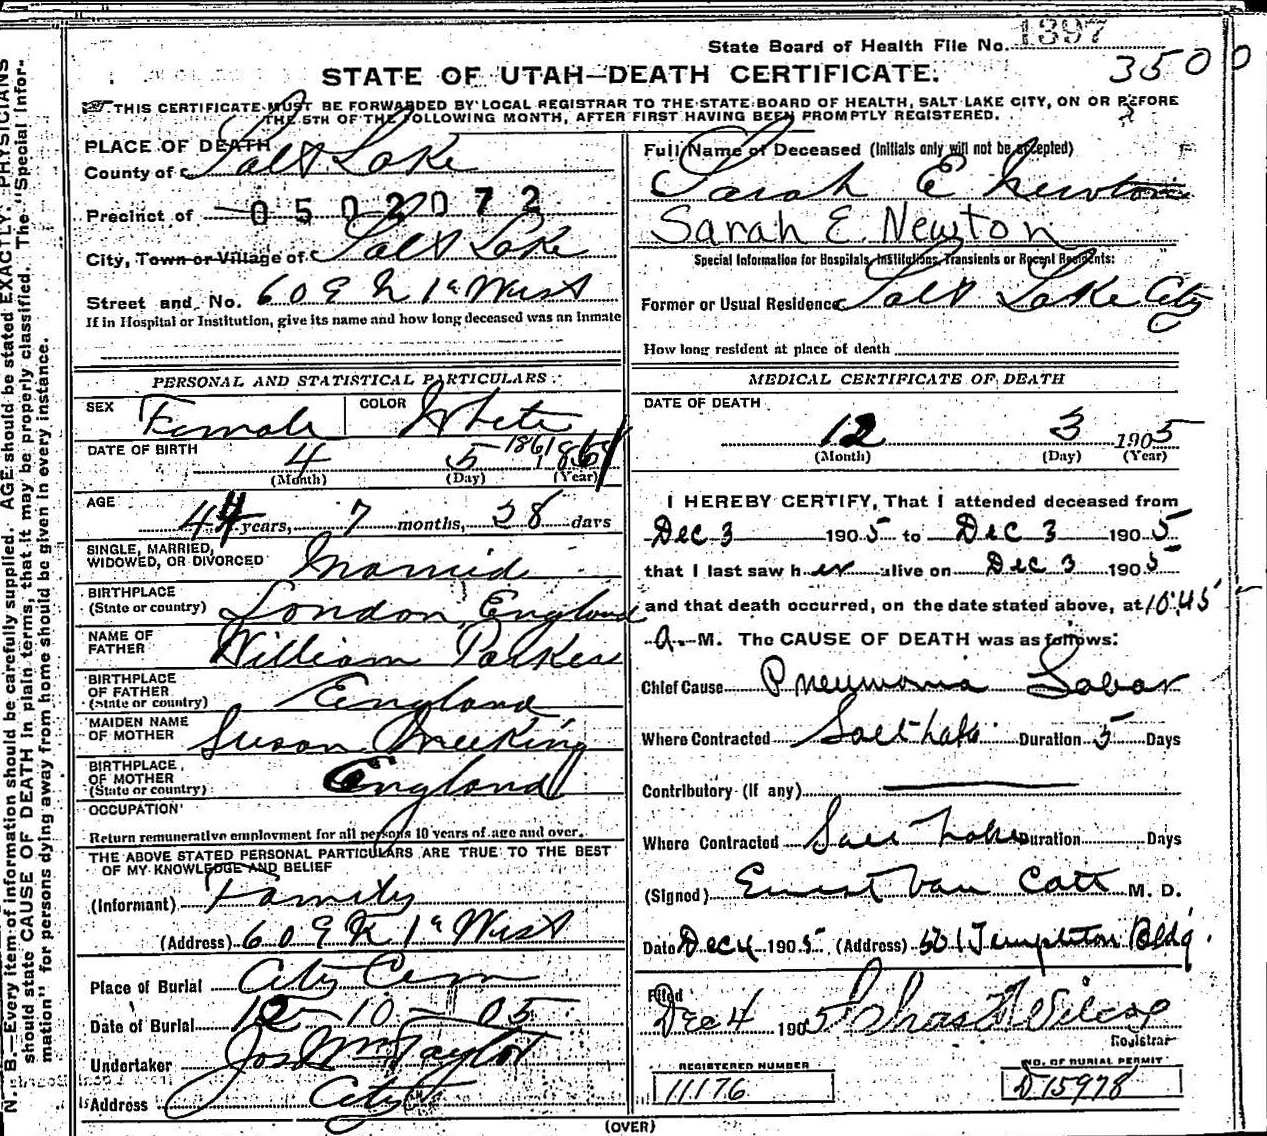 State Board of Health File No. 1397
3500
STATE OF UTAH—DEATH CERTIFICATE.
THIS CERTIFICATE MUST BE FORWARDED BY LOCAL REGISTRAR TO THE STATE BOARD OF HEALTH, SALT LAKE CITY, ON OR BEFORE
THE 5TH OF THE FOLLOWING MONTH, AFTER FIRST HAVING BEEN PROMPTLY REGISTERED.
PLACE OF DEATH
County of Salt Lake
Precinct of 0502072
City, Town or Village of Salt Lake
Street and No. 609 N 1st West
If in Hospital or Institution, give its name and how long deceased was an Inmate
Full Name of Deceased (Initials only will not be accepted)
Sarah E Newton
Sarah E. Newton
Special Information for Hospitals, Institutions, Transients or Recent Residents:
Former or Usual Residence Salt Lake City
How long resident at place of death
PERSONAL AND STATISTICAL PARTICULARS
SEX Female COLOR White
DATE OF BIRTH 4 5 1861
(Month) (Day) (Year)
AGE 44 years, 7 months, 28 days
SINGLE, MARRIED,
WIDOWED, OR DIVORCED Married
BIRTHPLACE
(State or country) London, England
NAME OF
FATHER William
BIRTHPLACE
OF FATHER
(State or country) England
MAIDEN NAME
OF MOTHER Susan
BIRTHPLACE
OF MOTHER
(State or country) England
OCCUPATION
Return remunerative employment for all persons 10 years of age and over.
THE ABOVE STATED PERSONAL PARTICULARS ARE TRUE TO THE BEST
OF MY KNOWLEDGE AND BELIEF
(Informant) Family
(Address) 609 N 1st West
Place of Burial City Cem
Date of Burial 12-10-05
Undertaker Jos Wm Taylor
Address City
MEDICAL CERTIFICATE OF DEATH
DATE OF DEATH
12 3 1905
(Month) (Day) (Year)
I HEREBY CERTIFY, That I attended deceased from
Dec 3 1905 to Dec 3 1905
that I last saw her alive on Dec 3 1905
and that death occurred, on the date stated above, at 10:45
a. M. The CAUSE OF DEATH was as follows:
Chief Cause Pneumonia Lobar
Where Contracted Salt Lake Duration 5 Days
Contributory (If any)
Where Contracted Salt Lake Duration Days
(Signed) Ernest Van Cott M. D.
Date Dec 4 1905 (Address) 501 Templeton Bldg.
Filed
Dec 4 1905 Chas F Wilcox
Registrar
REGISTERED NUMBER
11176
NO. OF BURIAL PERMIT
D 15978
(OVER)
N. B.—Every item of information should be carefully supplied. AGE should be stated EXACTLY. PHYSICIANS
should state CAUSE OF DEATH in plain terms, that it may be properly classified. The "Special Infor-
mation" for persons dying away from home should be given in every instance.